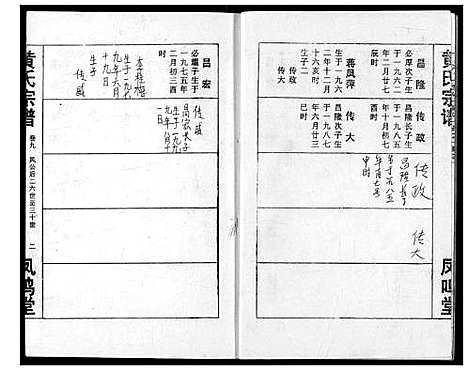 黄氏宗谱
凤鸣堂
昌隆
必厚次子生
于一九六二
年二月廿七
辰时
蒋凤萍
生于一九六
二年十二月
十六亥时
生子二
传政
传大
传政
昌隆长子生
于一九八五
年十月初七
酉时
传大
昌隆次子生
于一九八七
年六月廿三
传政
昌隆长子
生于一九八五
申时
传大
昌宏
必堛子生于
一九七五年
二月初三酉
时
李桂梅
生于一九七
九年六月
十九日
生子
传威
传威
昌宏长子
生于一九九
九年八月十
一日
黄氏宗谱
卷九
凤公后二六世至三十世
二
凤鸣堂